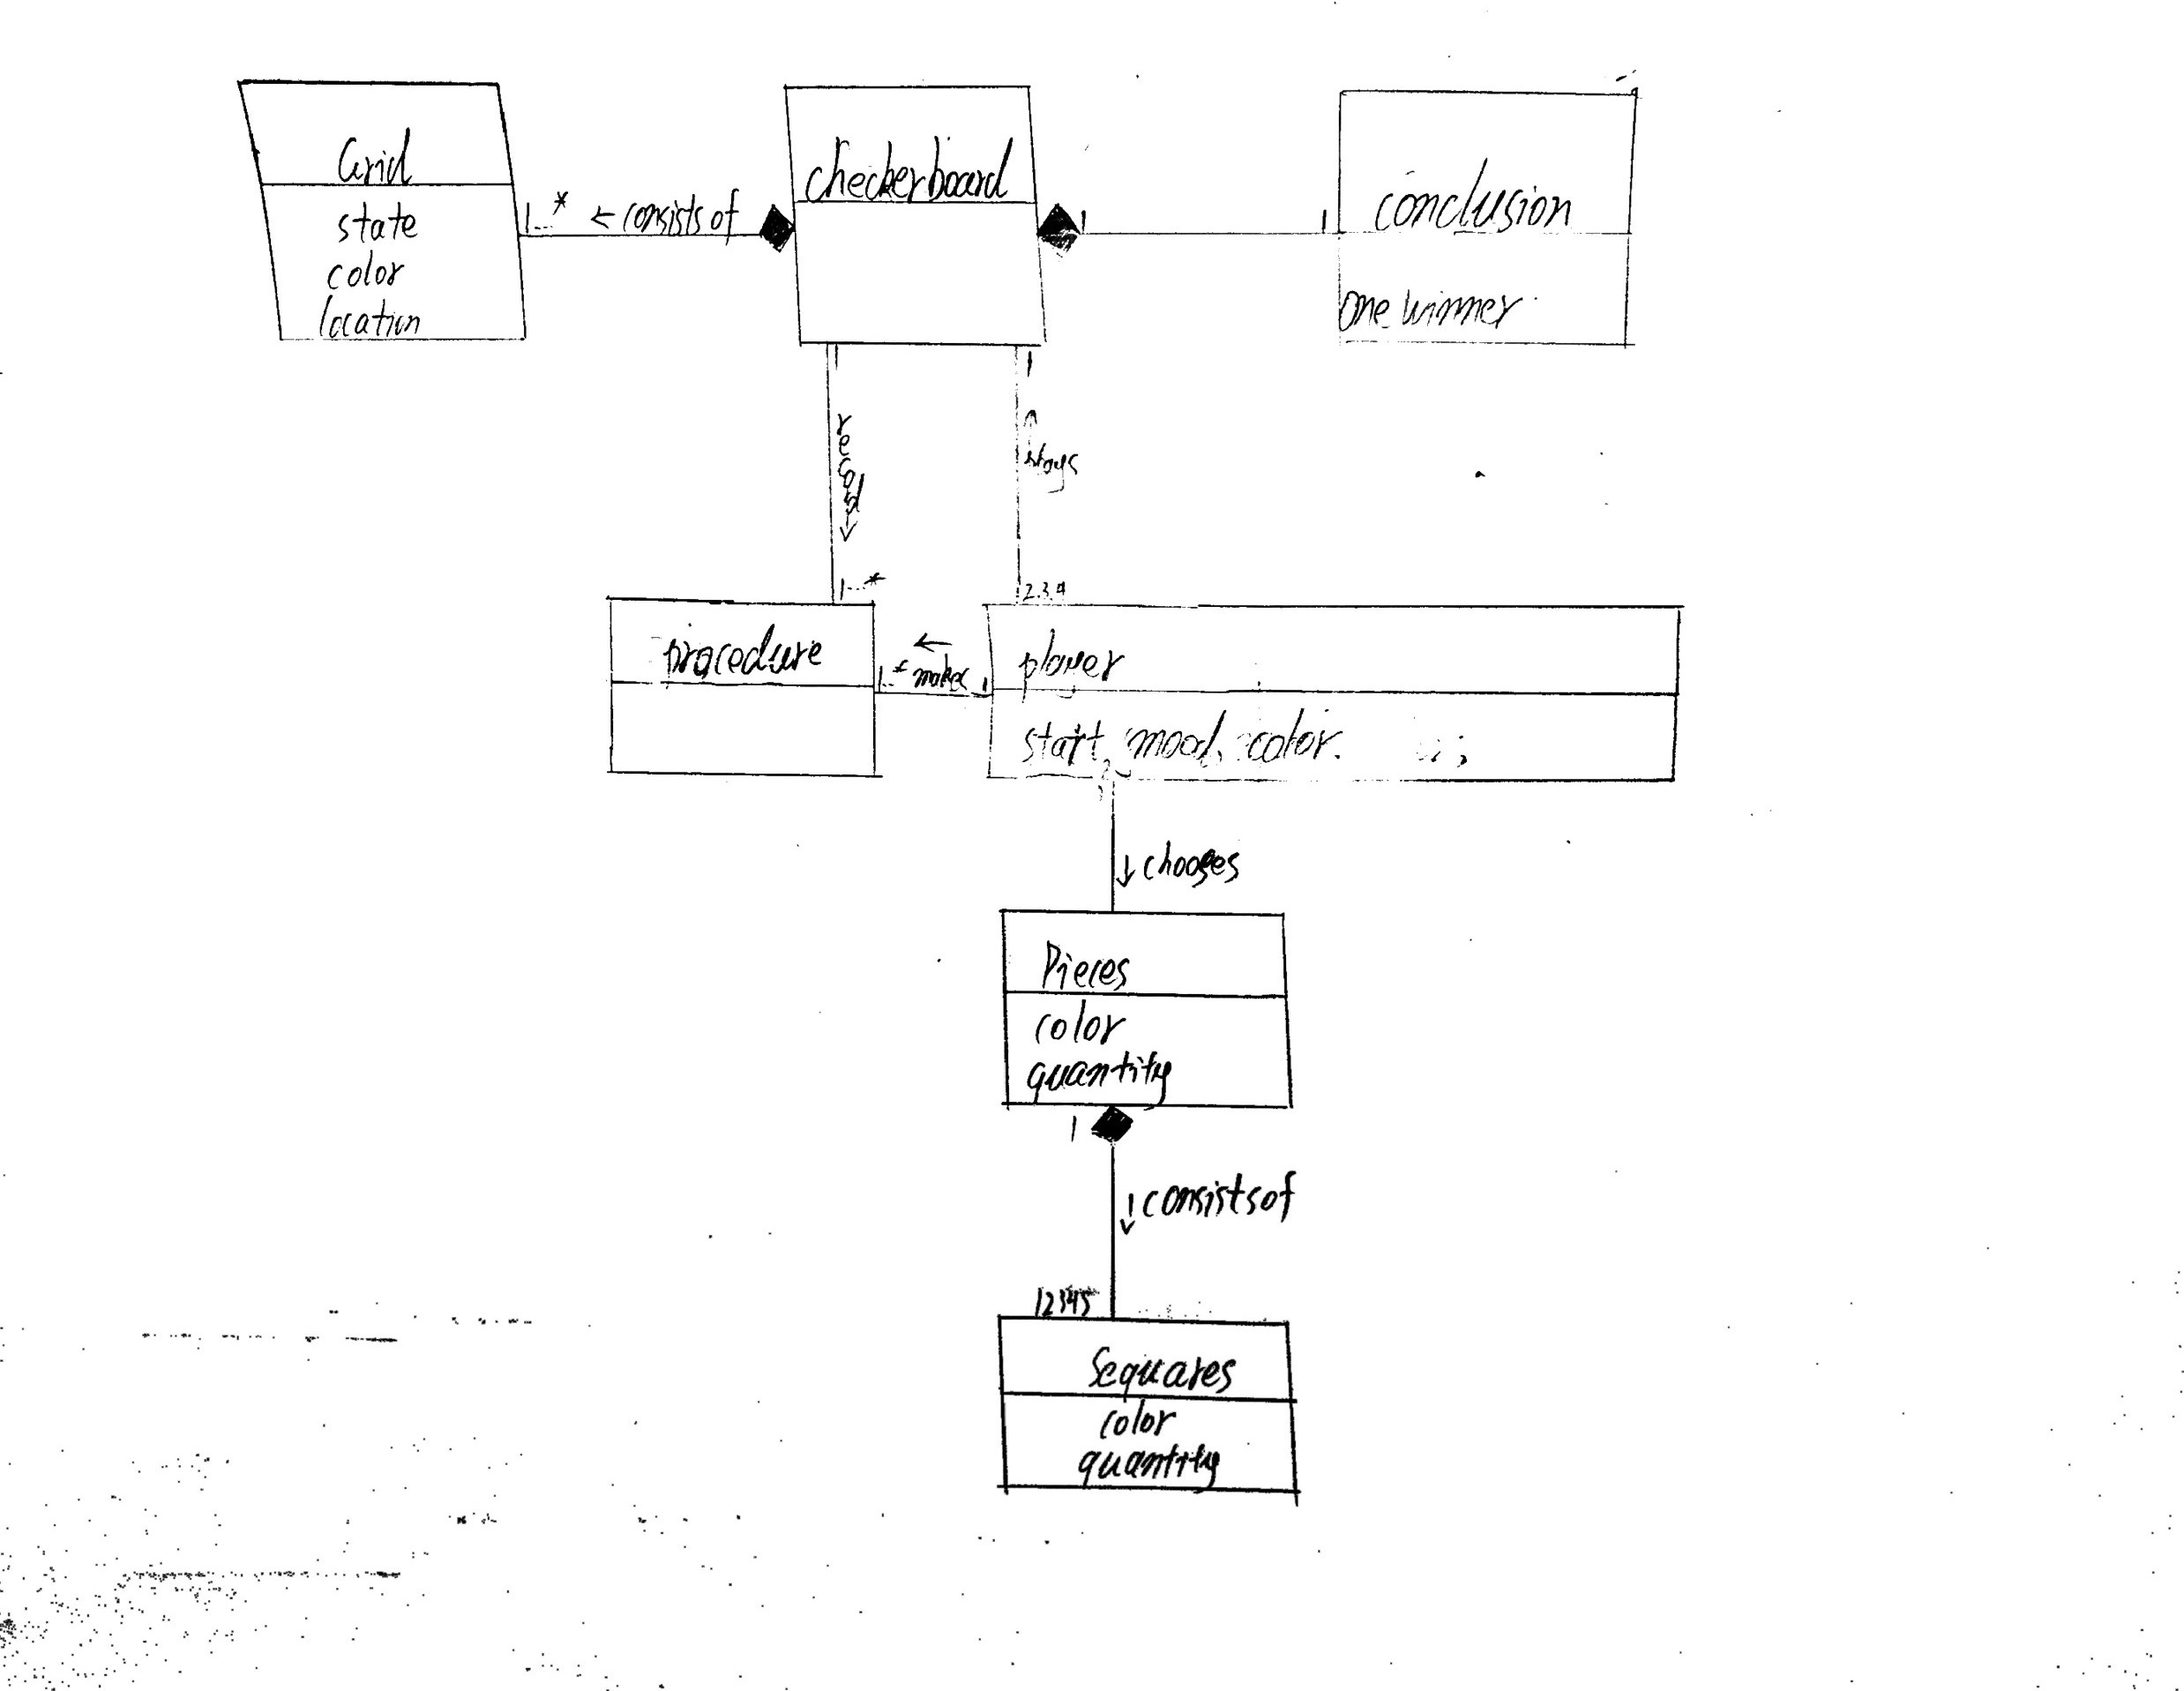 Grid
state
color
location
1..* ← consists of
checkerboard
1
1
conclusion
one winner
1
record
1..*
1
2.3.4
procedure
1..* makes 1
player
start, mood, color.
↓ chooses
Pieces
color
quantity
1
↓ consists of
12345
Sequares
color
quantity